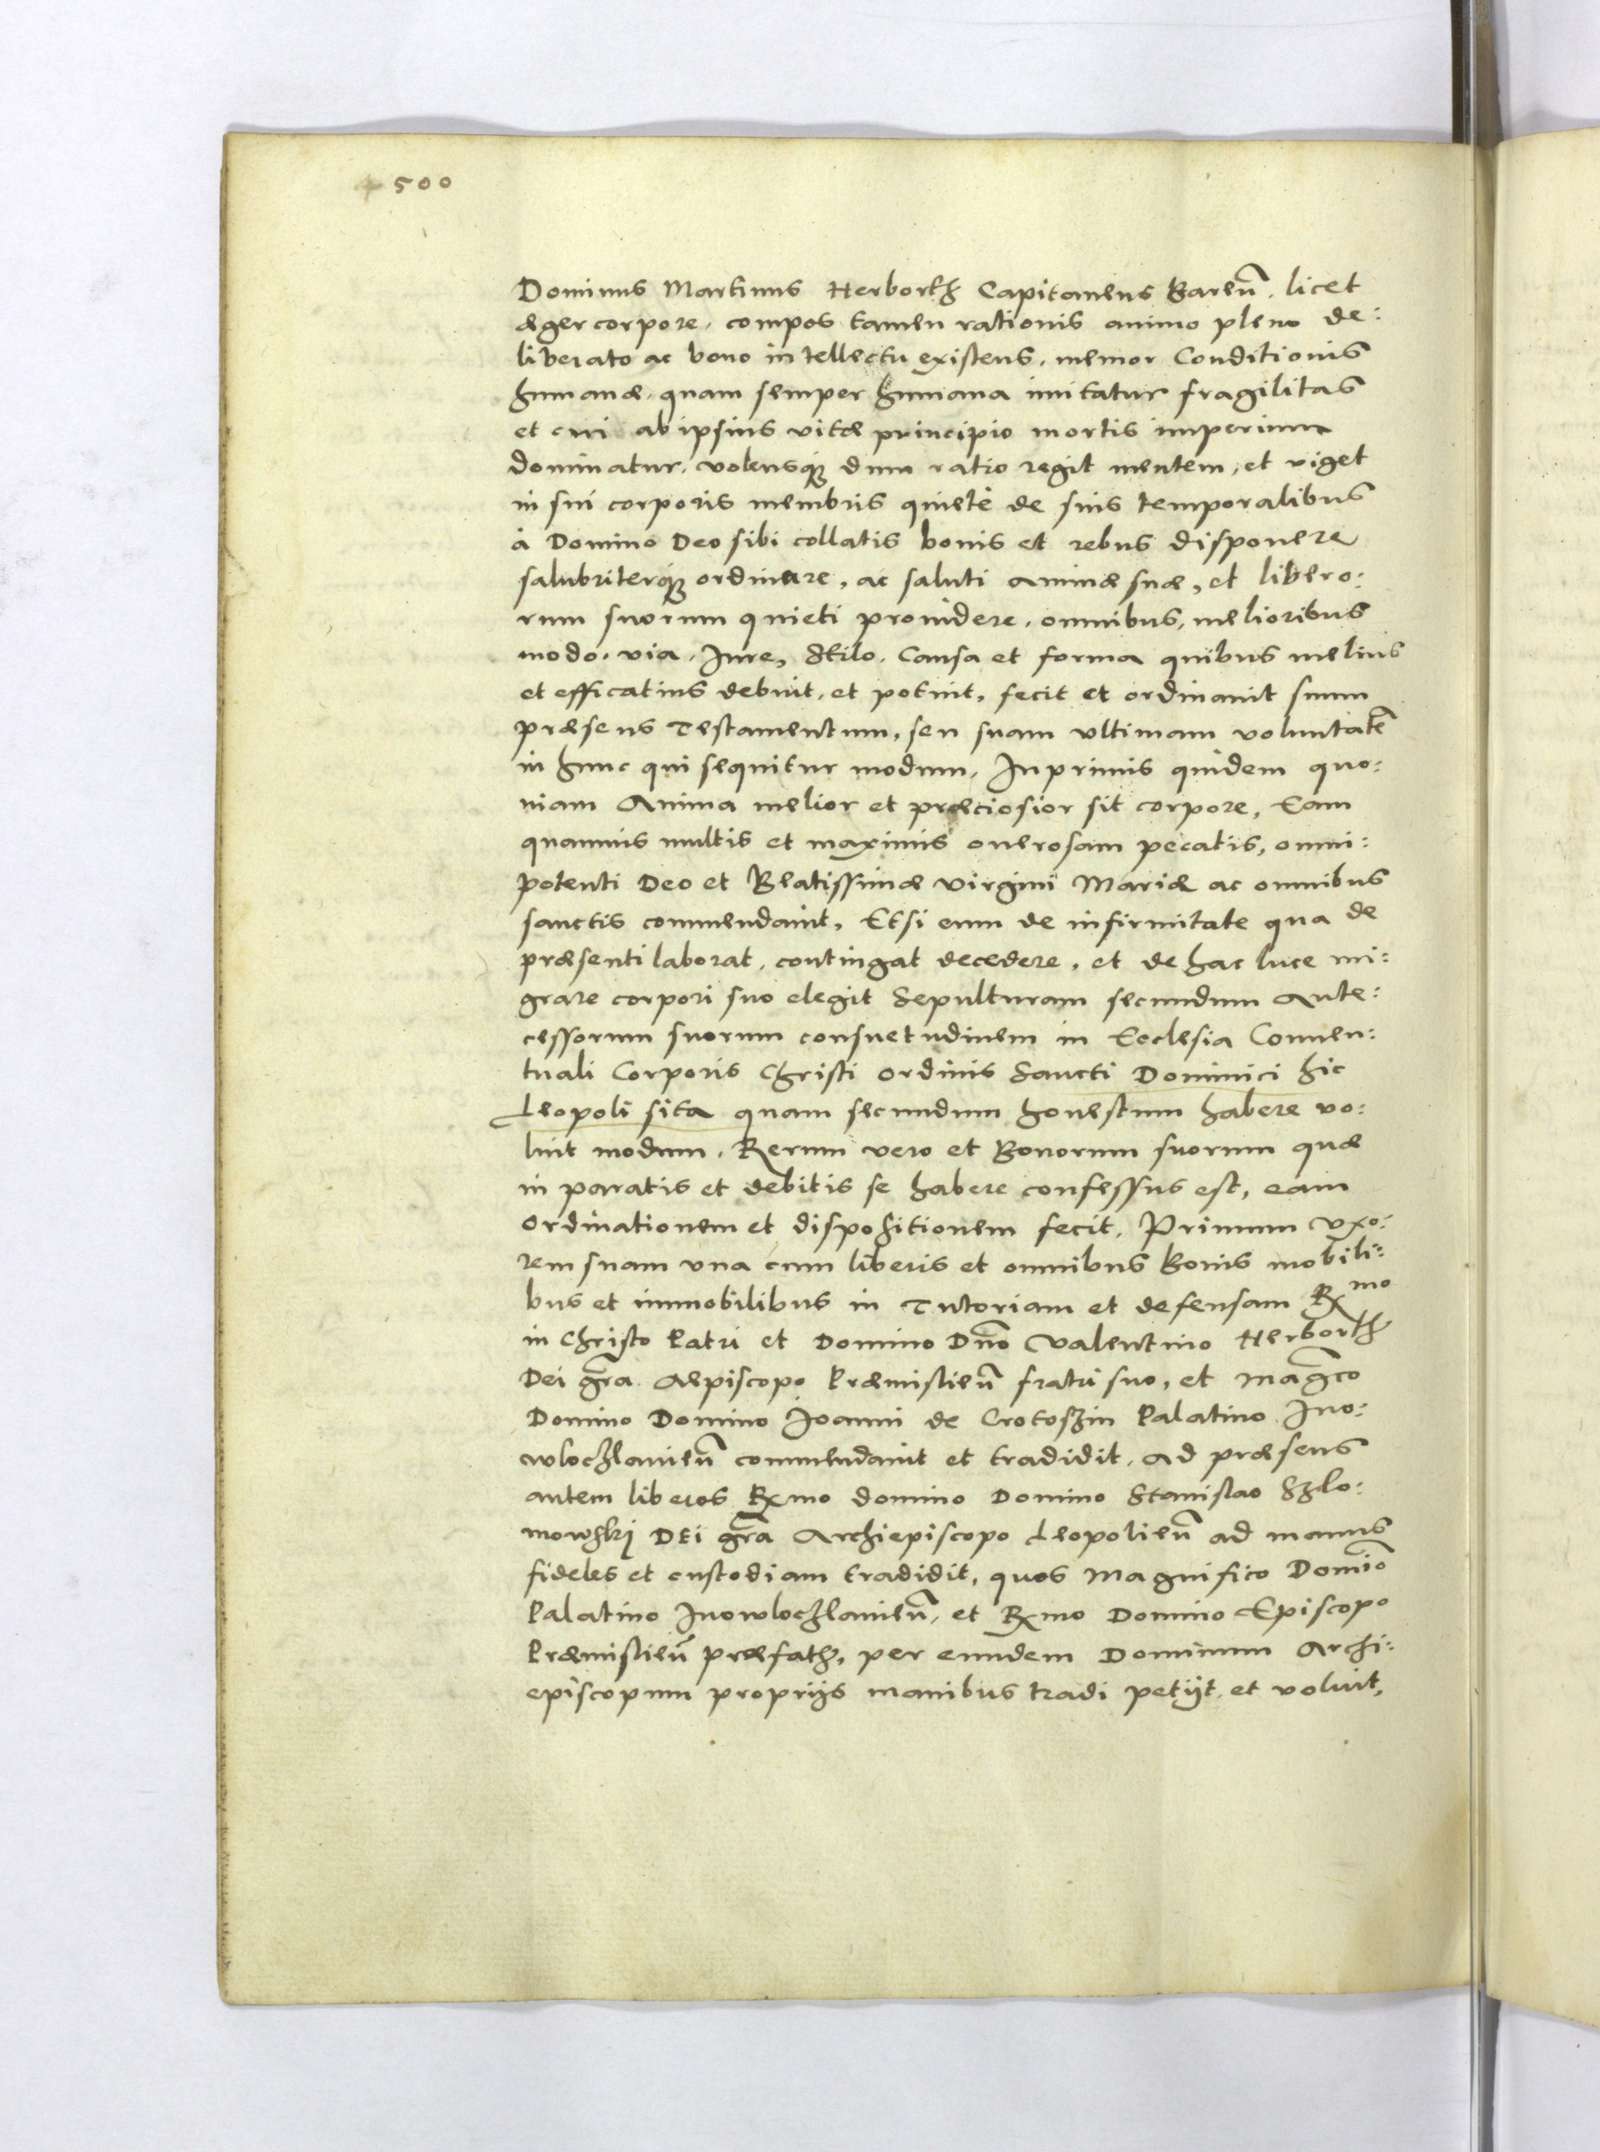 500
Dominus Martinus Herborth Capitaneus Bareñ. licet
æger corpore, compos tamen rationis animo pleno de:
liberato ac bono intellectu existens, memor Conditionis
humanæ, quam semper humana imitatur fragilitas
et cui ab ipsius vitæ principio mortis imperium
dominatur, volensq dum ratio regit mentem, et viget
in sui corporis membris quietè de suis temporalibus
à Domino Deo sibi collatis bonis et rebus disponere
salubriterq ordinare, ac saluti Animæ suæ, et libero:
rum suorum quieti prouidere, omnibus, melioribus
modo, via, Iure, Stilo, Causa et forma quibus melius
et efficatius debuit, et potuit, fecit et ordinauit suum
præsens Testamentum, seu suam vltimam voluntatē
in hunc qui sequitur modum, Inprimis quidem quo:
niam Anima melior et præciosior sit corpore, Eam
quamuis multis et maximis onerosam pecatis, omni:
potenti Deo et Beatissimæ Virgini Mariæ ac omnibus
sanctis commendauit, Etsi eum de infirmitate qua de
præsenti laborat, contingat decedere, et de hac luce mi:
grare corpori suo elegit Sepulturam secundum Ante:
cessorum suorum consuetudinem in Ecclesia Conuen:
tuali Corporis Christi ordinis Sancti Dominici hic
Leopoli sita quam secundum honestum habere vo:
luit modum. Rerum vero et Bonorum suorum quæ
in paratis et debitis se habere confessus est, eam
ordinationem et dispositionem fecit. Primum Vxo:
rem suam vna cum liberis et omnibus Bonis mobili:
bus et immobilibus in Tutoriam et defensam Rmo
in Christo Patri et Domino Dño Valentino Herborth
Dei gra Æpiscopo Præmislieñ fratri suo, et Magco
Domino Domino Joanni de Crotoszin Palatino Ino:
wloczlauieñ commendauit et tradidit. Ad præsens
autem liberos Rmo domino Domino Stanislao Szlo:
mowskij DEi gra Archiepiscopo Leopolieñ ad manus
fideles et custodiam tradidit, quos Magnifico Domīo
Palatino Inowloczlauieñ, et Rmo Domino Episcopo
Præmislieñ præfath, per eundem Dominum Archi:
episcopum proprijs manibus tradi petijt et voluit,